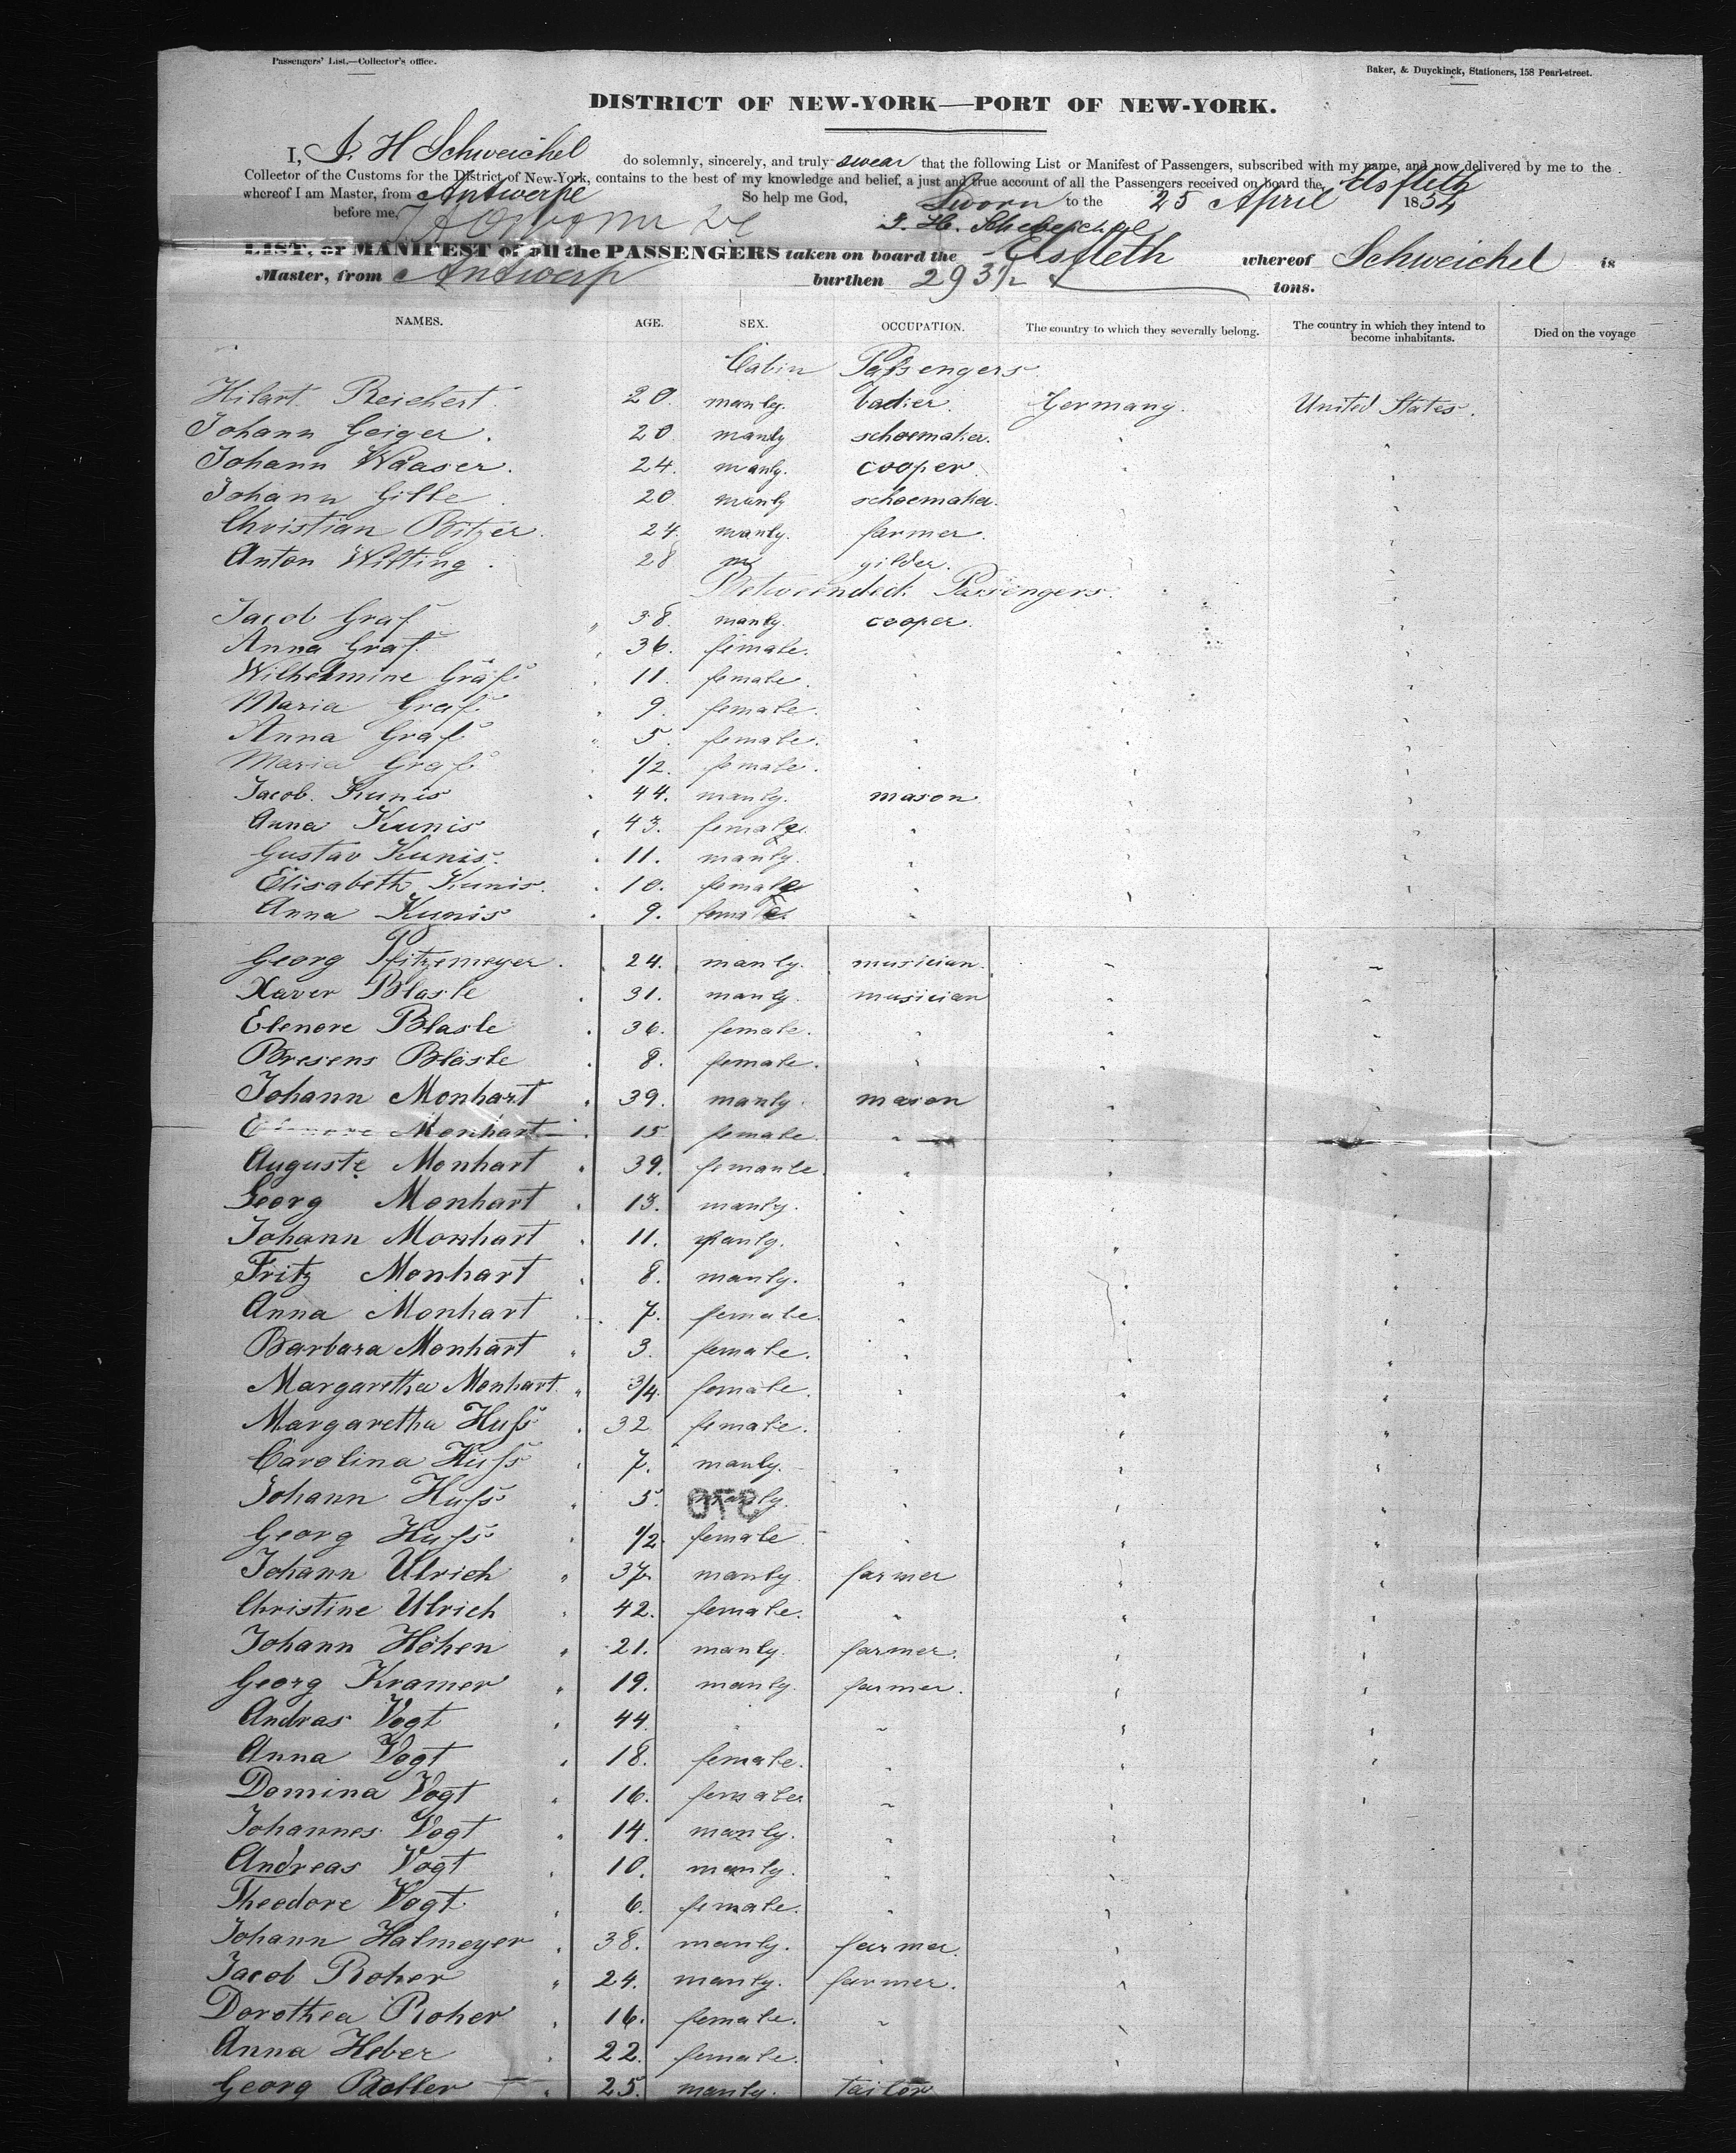 Passengers' List.—Collector's office.
Baker, & Duyckinck, Stationers, 158 Pearl-street.
DISTRICT OF NEW-YORK—PORT OF NEW-YORK.
I, J. H Schweichel do solemnly, sincerely, and truly swear that the following List or Manifest of Passengers, subscribed with my name, and now delivered by me to the
Collector of the Customs for the District of New-York, contains to the best of my knowledge and belief, a just and true account of all the Passengers received on board the Elsfleth
whereof I am Master, from Antwerpe So help me God, Sworn to the 25 April 1854
before me,
LIST, or MANIFEST of all the PASSENGERS taken on board the Elsfleth whereof Schweichel is
Master, from Antwerp burthen 293½ tons.
NAMES. AGE. SEX. OCCUPATION. The country to which they severally belong. The country in which they intend to become inhabitants. Died on the voyage
Cabin Passengers
Hilart Reichert. 20. manly. Germany. United States.
Johann Geiger. 20 manly schoemaker.
Johann Waaser. 24. manly. cooper
Johann Gille 20 manly schoemaker.
Christian Bitzer. 24. manly. farmer.
Anton Wilting. 28 m gilder.
Betweendeck Passengers.
Jacob Graf " 38. manly. cooper.
Anna Graf " 36. female.
Wilhelmine Graf " 11. female.
Maria Graf " 9. female.
Anna Graf " 5. female.
Maria Graf 1/2. female.
Jacob. Kunis 44. manly. mason
Anna Kunis 43. female
Gustav Kunis. 11. manly.
Elisabeth Kunis. 10. female
Anna Kunis 9. female.
Georg Pfitzemeyer. 24. manly. musician.
Xaver Blasle 31. manly. musician
Elenore Blasle 36. female.
Bresens Blasle 8. female.
Johann Monhart 39. manly. mason
Elenore Monhart 15 female.
Auguste Monhart " 39. femanle.
Georg Monhart 13. manly.
Johann Monhart 11. manly.
Fritz Monhart 8. manly.
Anna Monhart 7. female.
Barbara Monhart " 3. female.
Margaretha Monhart. " 3/4. female.
Margaretha Huss 32 female.
Carolina Huss 7. manly.
Johann Huss " 5. manly.
Georg Huss 1/2 female
Johann Ulrich " 37. manly. farmer
Christine Ulrich 42. female.
Johann Hohen " 21. manly. farmer.
Georg Kramer " 19. manly. farmer.
Andras Vogt 44. "
Anna Vogt 18. female.
Domina Vogt 16. female
Johannes Vogt " 14. manly.
Andreas Vogt 10. manly.
Theodore Vogt 6. female.
Johann Halmeyer 38. manly. farmer.
Jacob Roher " 24. manly. farmer.
Dorothea Roher 16. female.
Anna Heber 22. female.
Georg Boller " 25. manly. tailor